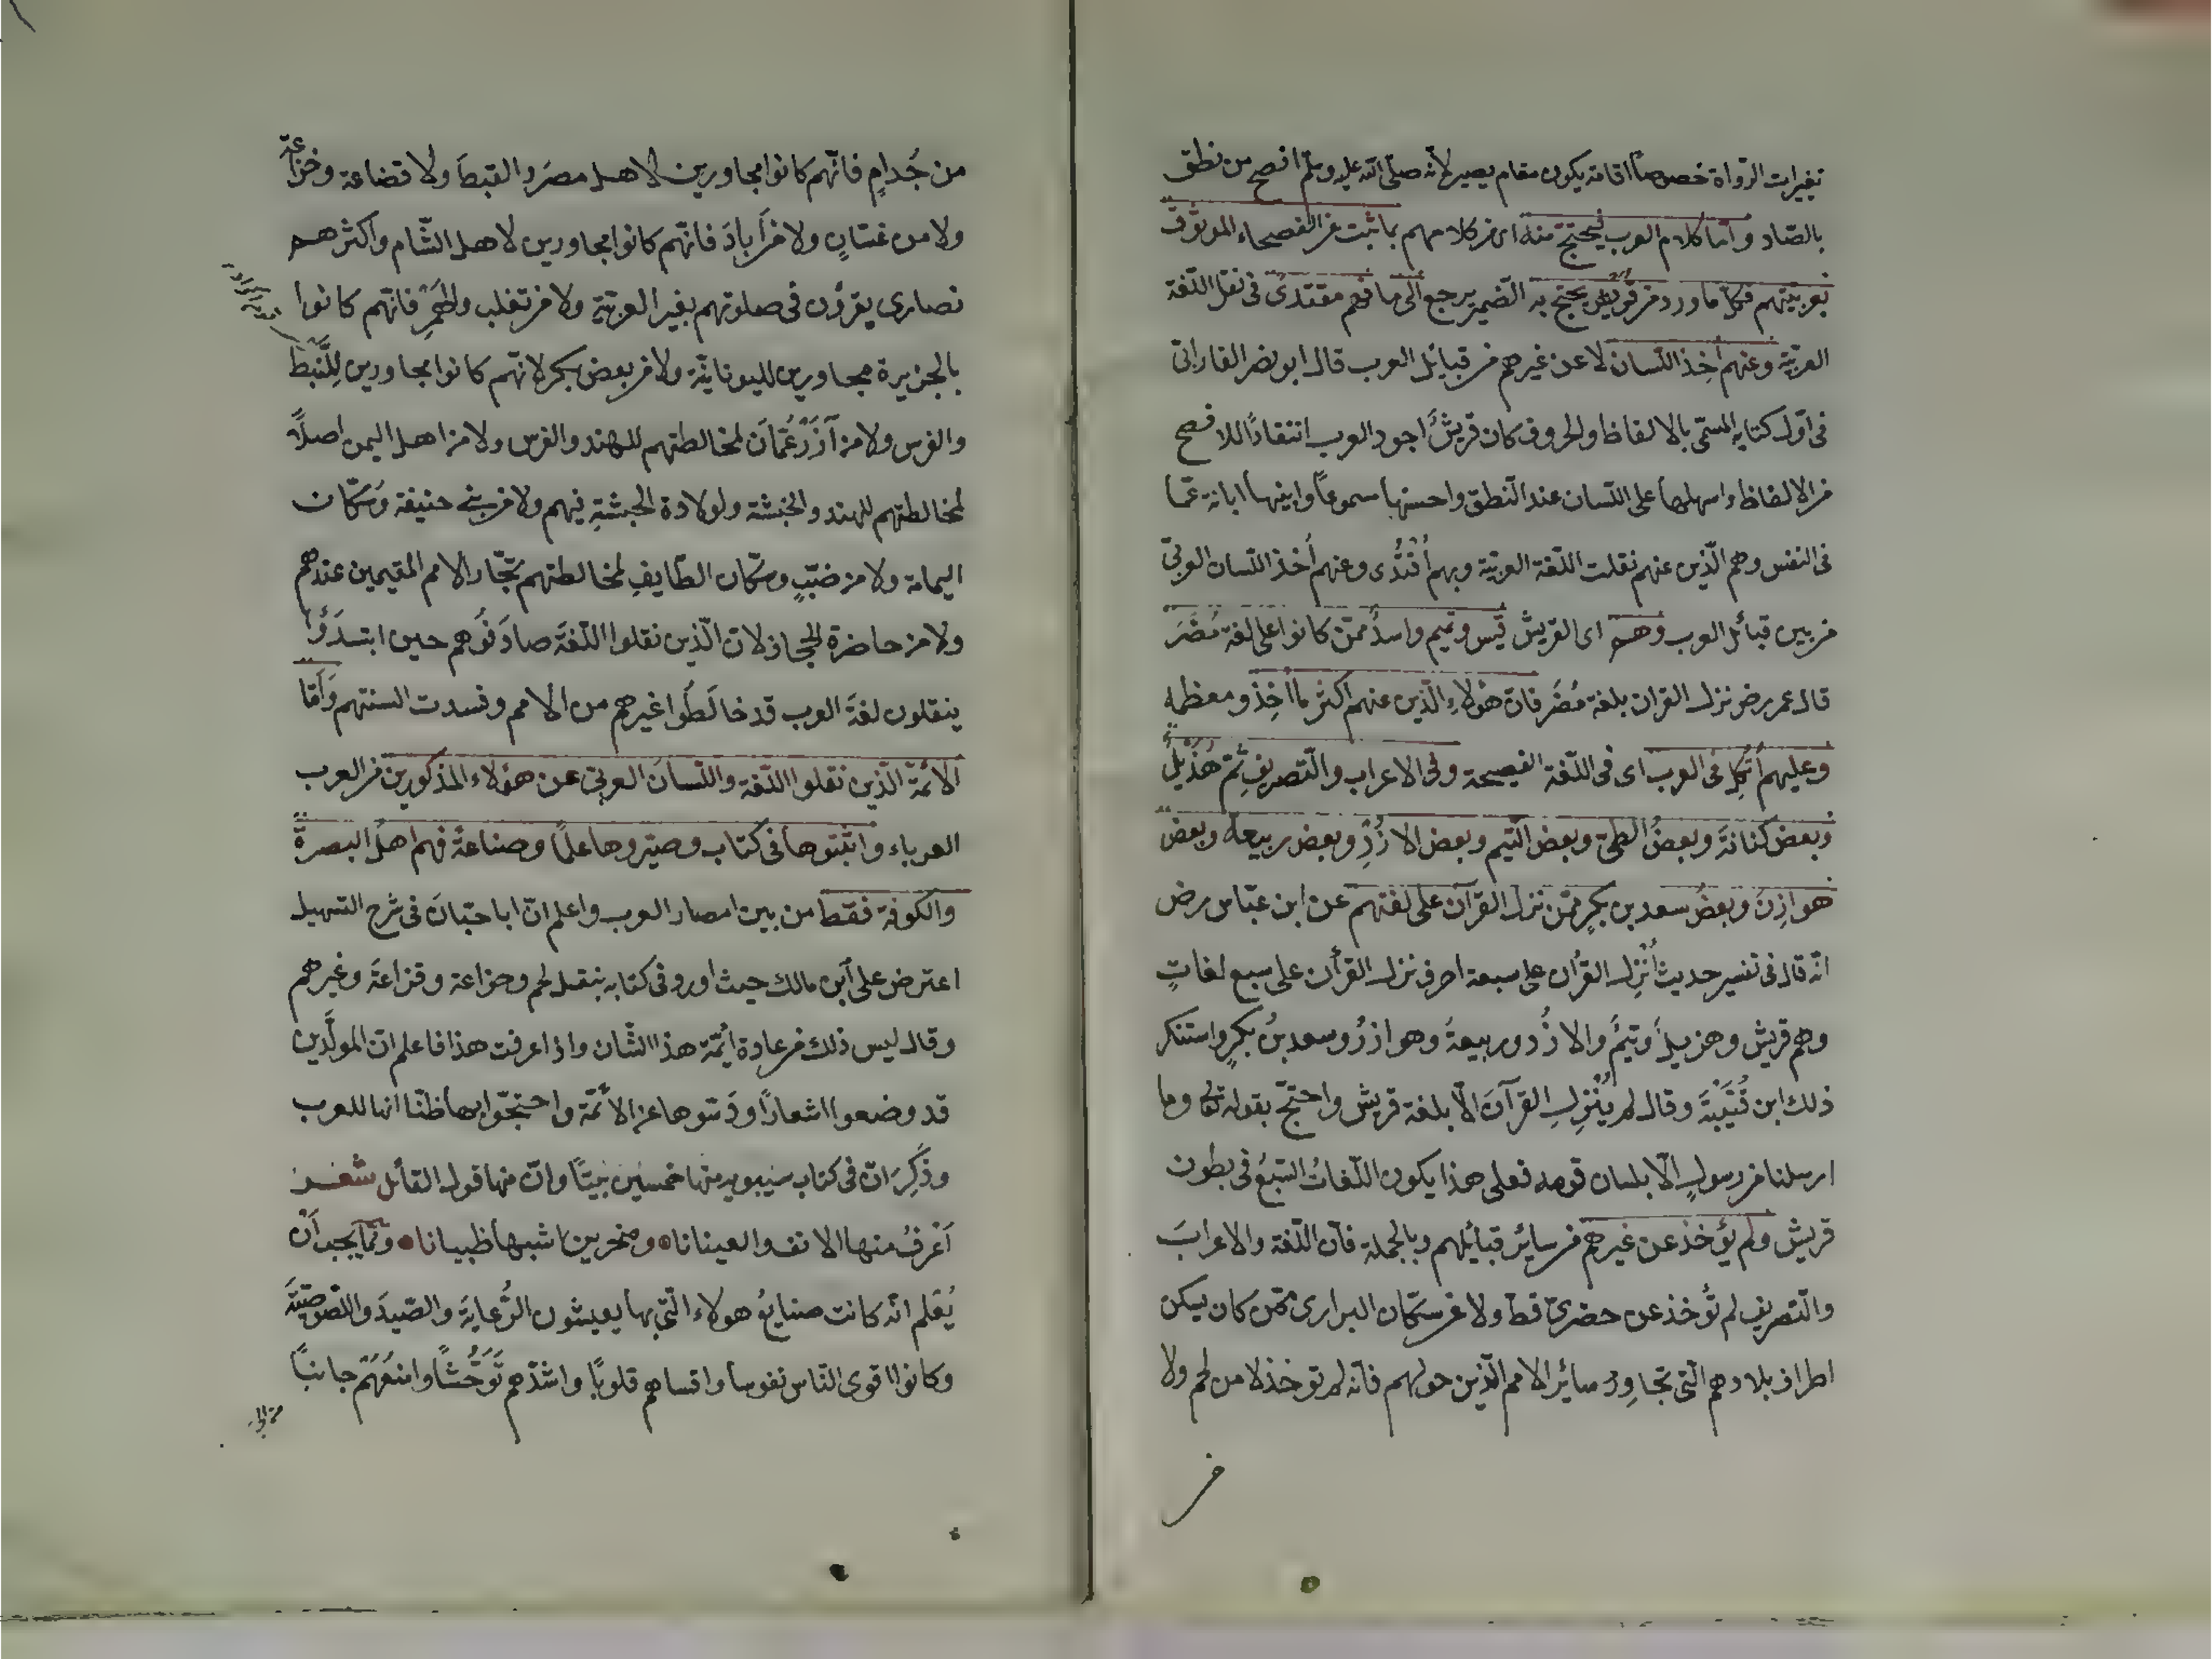 تغيرات الرّواة خصوصاً اقامة يكون مقام يصير لانّه صلّى الله عليه وسلّم افصح من نطق
بالضّاد وامّا كلام العرب فيحتجّ منه اى من كلامهم بما ثبت عن الفصحاء الموثوق
بعربيّتهم فكلّ ما ورد من قريش يحتجّ به الضّمير يرجع الى ما فهم مقتدى فى نقل اللّغة
العربيّة وعنهم أُخِذ اللّسان لا عن غيرهم من قبائل العرب قال ابو نصر الفارابى
فى اوّل كتابه المسمّى بالالفاظ والحروف كان قريشٌ اجود العرب انتقاداً للافصح
من الالفاظ واسهلها على اللّسان عند النّطق واحسنها سموعاً وابينها ابانة عمّا
فى النفس وهم الّذين عنهم نقلت اللّغة العربيّة وبهم أُقْتُدى وعنهم أُخذ اللّسان العربىّ
من بين قبائل العرب وهم اى القريش قيس وتميم واسدٌ ممّن كانوا على لغة مُضَرَ
قال عمر رض نزل القران بلغة مُضَر فانّ هؤلاءِ الّذين عنهم اكثر ما أُخِذَ ومعظمه
وعليهم اُتّكِل فى العرب اى فى اللّغة الفصيحة وفى الاعراب والتّصريفِ ثمّ هُذَيْلٌ
وبعض كنانةَ وبعضُ الطىّ وبعض التّيم وبعض الازُدِ وبعض ربيعة وبعض
هوازِنَ وبعضُ سعد بن بكرٍ ممّن نزل القرآن على لغتهم عن ابن عبّاس رض
انّه قال فى تفسير حديث أُنْزِل القرآن على سبعة احرفٍ نزل القرأن على سبع لغاتٍ
وهم قريش وهزيلٌ وتيمٌ والازُد وربيعةُ وهوازنُ وسعد بنُ بكرٍ واستنكر
ذلك ابن قُتَيْبَةَ وقال لم يُنْزِلِ القرآنَ الّا بلغة قريش واحتجّ بقوله تعالى وما
ارسلنا من رسولٍ الّا بلسان قومه فعلى هذا يكون اللّغاتُ السّبعُ فى بطون
قريش ولم يؤخذ عن غيرهم من سائر قبائلهم وبالجملة فانّ اللّغة والاعرابَ
والتّصريف لم تُؤخذ عن حضرىّ قطّ ولا عن سكّان البرارى ممّن كان يسكن
اطراف بلادهم الّتى تجاوِرُ سائر الامم الّذين حولهم فانّه لم تؤخذ لا من لخم ولا
من جُدامٍ فانّهم كانوا مجاورين لاهل مصرَ والقبطَ ولا قضاعة وخزاعة
ولا من غسّانٍ ولا من أَيادَ فانّهم كانوا مجاورين لاهل الشّام واكثرهم
نصارى يقرؤن فى صلوتهم بغير العربيّة ولا من تغلب والنّمرِ فانّهم كانوا
بالجزيرة مجاورين لليونانيّة ولا من بعض بكر لانّهم كانوا مجاورين لِلنَّبَط
والفرس ولا من آزدِ عُمّان لمخالطتهم للهند والفرس ولا من اهل اليمن اصلاً
لمخالطتهم للهند والحبشة ولولادة الحبشةِ فيهم ولا من بنى حنيفة وسُكّان
اليمامة ولا من ضبّبٍ وسكّان الطّايفِ لمخالطتهم تجّار الامم المقيمين عندهم
ولا من حاضرة الحجاز لانّ الّذين نقلوا اللّغَة صادَفُوهم حين ابتدَؤُا
ينقلون لغةَ العرب قد خالَطُوا غيرهم من الامم وفسدت السنتهم وَأمّا
الائمّة الّذين نقلوا اللّغة واللّسانَ العربىّ عن هؤلاء المذكورين من العرب
العرباء واثبتوها فى كتاب وصيّروها علمًا وصناعةً فهم اهلُ البصرةَ
والكوفة فقط من بين امصار العرب واعلم انّ ابا حيّانَ فى شرح التسهيل
اعترض على اّبن مالك حيث اورد فى كتابه بنقل لخم وخزاعة وقزاعَة وغيرهم
وقال ليس ذلك من عادة ائمّة هذا الشّان واذا عرفت هذا فاعلم انّ المولَّدين
قد وضعوا اشعارًا ودَسّوها عن الأئمّة واحتجّوا بها ظنّا انها للعرب
وذُكِرَ انّ فى كتاب سيبويه منها خمسين بَيتًا وانّ منها قول القائل شعر
اَعْرفُ منها الانف والعينانا • ومنخرين اشبها ظبيانا • وممّا يجب اَنْ
يُعْلم انّه كانت صنايعُ هولاء الّتى بها يعيشون الرُّعايَة والصّيدَ واللّصوصيّةَ
وكانوا اقوى النّاس نفوسا واقساهم قلوبًا واشدّهم تَوَحُّشًا وامنَعَهَم جانبًا